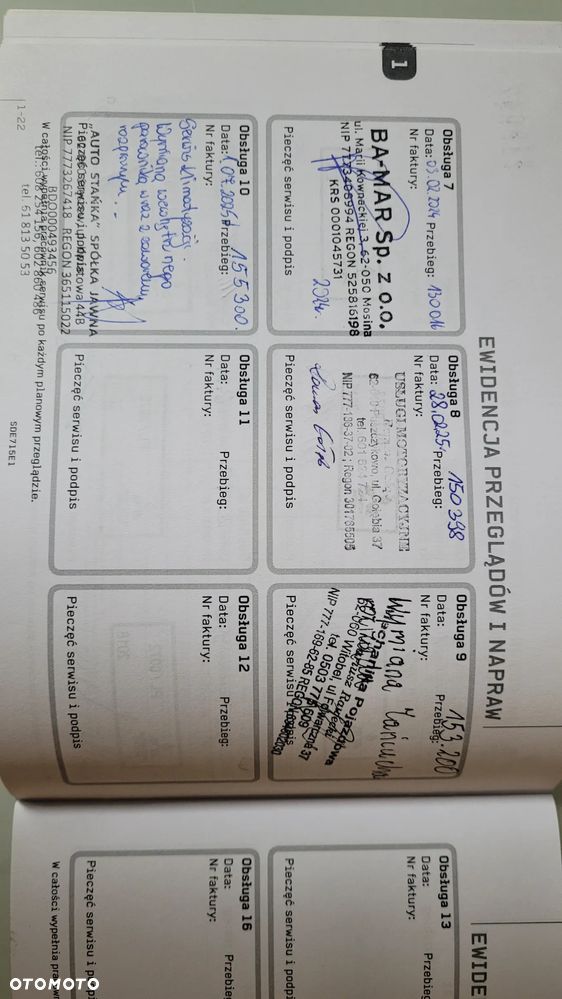 1
EWIDENCJA PRZEGLĄDÓW I NAPRAW
Obsługa 7
Data: 05.02.2024 Przebieg: 130016
Nr faktury:
BA-MAR Sp. z o.o.
ul. Marii Kownackiej 3, 62-050 Mosina
NIP 7773406994 REGON 525816198
KRS 0001045731
2024r.
Pieczęć serwisu i podpis
Obsługa 8
150398
Data: Przebieg:
Nr faktury:
USŁUGI MOTORYZACYJNE
ul. Gołębia 37
NIP 777-136-37-02; Regon 301765505
Pieczęć serwisu i podpis
Obsługa 9
153.200
Data: Przebieg:
Nr faktury:
Wymiana łańcucha
Mechanika Pojazdowa
Pieczęć serwisu i podpis
Obsługa 10
155300.
Data: Przebieg:
Nr faktury:
Serwis klimatyzacji.
Wymiana
parownika wraz z zaworem
rozprężnym.
"AUTO STAŃKA" SPÓŁKA JAWNA
Pieczęć serwisu i podpis
NIP 7773267418 REGON 365115022
BDO000493456
tel. 61 813 50 53
Obsługa 11
Data: Przebieg:
Nr faktury:
Pieczęć serwisu i podpis
Obsługa 12
Data: Przebieg:
Nr faktury:
Pieczęć serwisu i podpis
W całości wypełnia pracownik serwisu po każdym planowym przeglądzie.
1-22
SDE715E1
EWIDE
Obsługa 13
Data: Przebieg
Nr faktury:
Pieczęć serwisu i podpis
Obsługa 16
Data: Przebie
Nr faktury:
Pieczęć serwisu i podpis
W całości wypełnia pracow
OTOMOTO